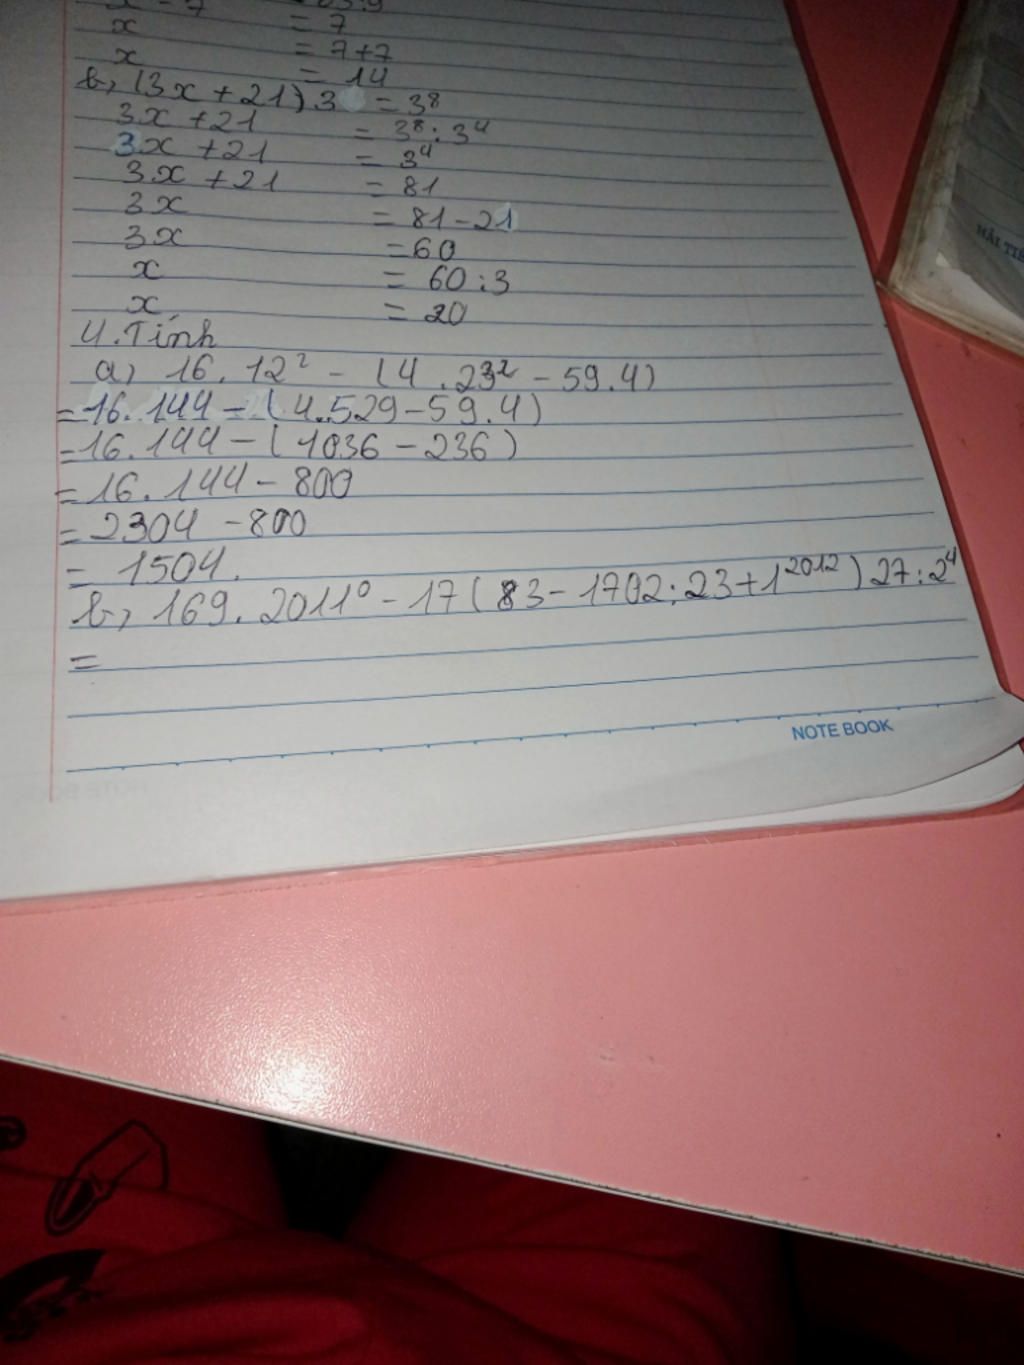 x = 7
x = 7+7
x = 14
b, (3x + 21) 3 = 3⁸
3x + 21 = 3⁸ : 3⁴
3x + 21 = 3⁴
3x + 21 = 81
3x = 81 - 21
3x = 60
x = 60 : 3
x = 20
4. Tính
a, 16 . 12² - (4 . 23² - 59.4)
= 16. 144 - (4.529 - 59.4)
= 16. 144 - (1036 - 236)
= 16. 144 - 800
= 2304 - 800
= 1504.
b, 169. 2011⁰ - 17 (83 - 1702 : 23 + 1²⁰¹²) 27 : 2⁴
=
NOTE BOOK